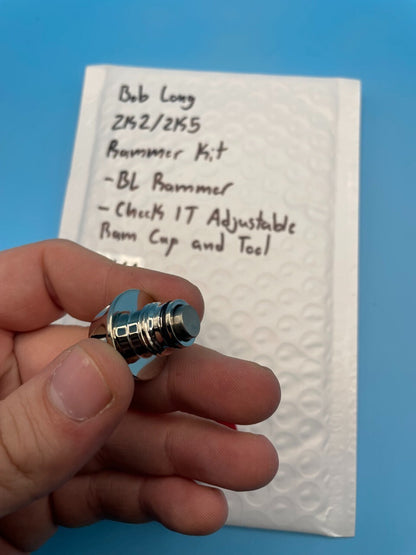 Bob Long
2K2/2K5
Rammer Kit
-BL Rammer
-Check IT Adjustable
Ram Cap and Tool